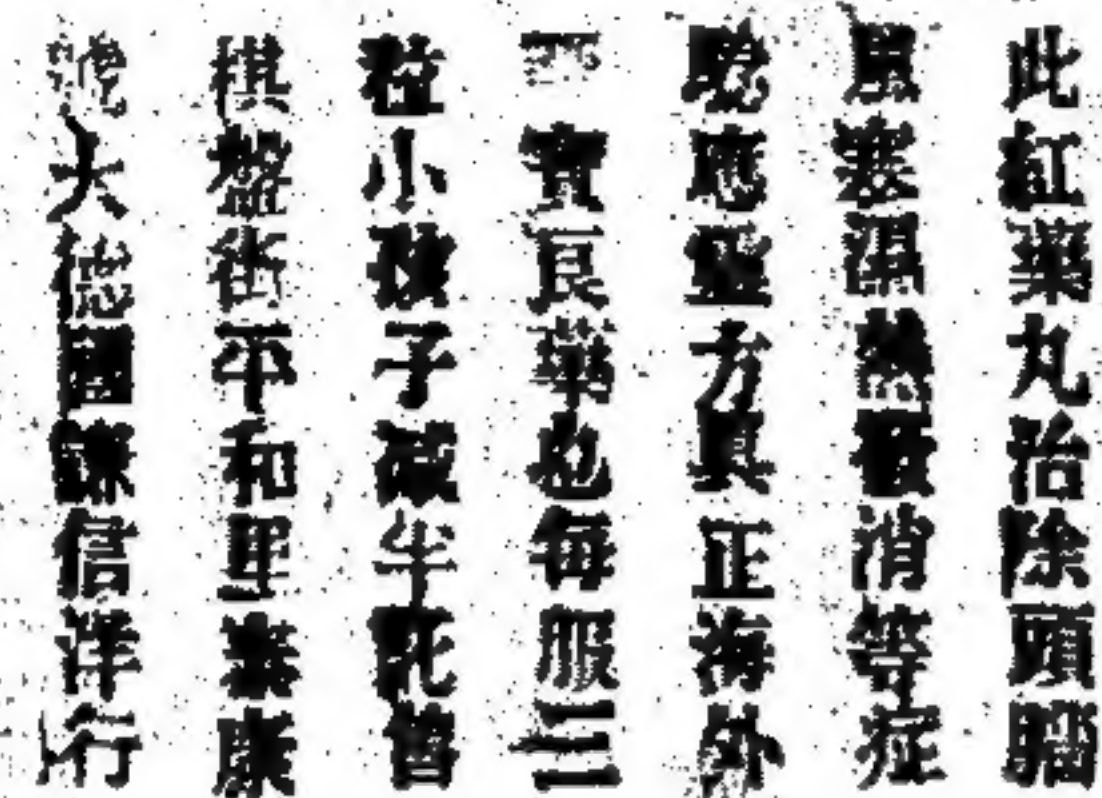 此紅藥丸治除頭腦
風寒濕熱發消等症
聡應靈方真正海外
一寶良藥也每服三
粒小孩子減半批售
棋盤街平和里泰康
大德國謙信洋行